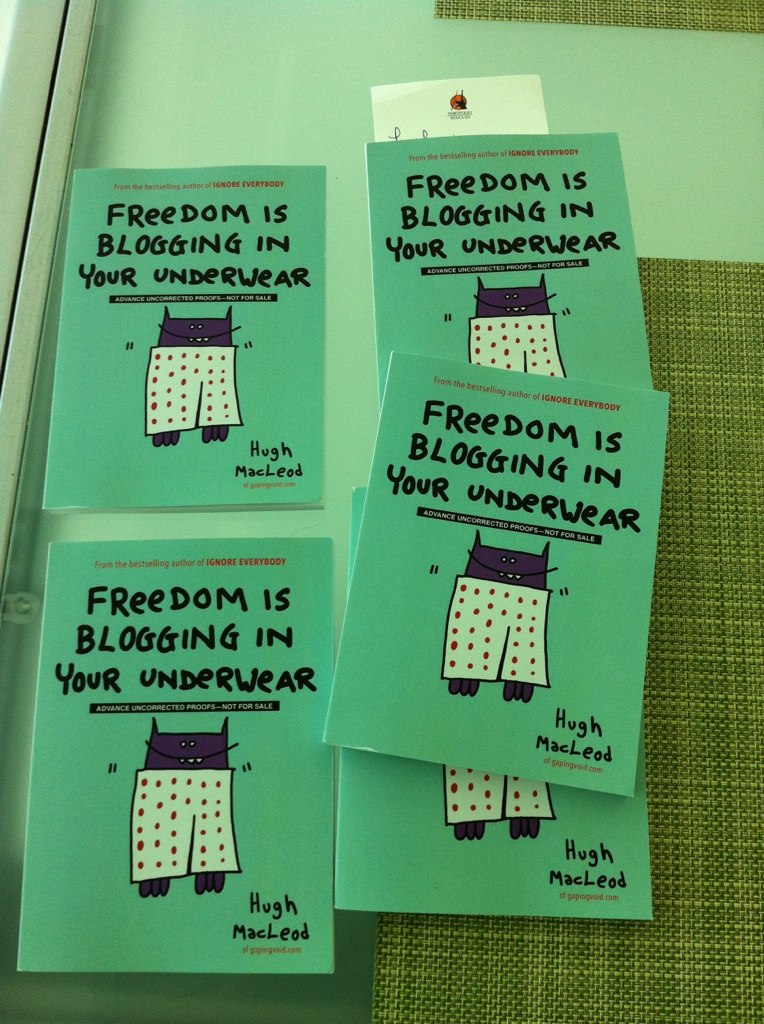 From the bestselling author of IGNORE EVERYBODY
FReeDOM IS
BLOGGING IN
YOUR UNDERWEAR
ADVANCE UNCORRECTED PROOFS—NOT FOR SALE
Hugh
MacLeod
of gapingvoid.com
From the bestselling author of IGNORE EVERYBODY
FReeDOM IS
BLOGGING IN
YOUR UNDERWEAR
ADVANCE UNCORRECTED PROOFS—NOT FOR SALE
From the bestselling author of IGNORE EVERYBODY
FReeDOM IS
BLOGGING IN
YOUR UNDERWEAR
ADVANCE UNCORRECTED PROOFS—NOT FOR SALE
Hugh
MacLeod
of gapingvoid.com
From the bestselling author of IGNORE EVERYBODY
FReeDOM IS
BLOGGING IN
YOUR UNDERWEAR
ADVANCE UNCORRECTED PROOFS—NOT FOR SALE
Hugh
MacLeod
of gapingvoid.com
Hugh
MacLeod
of gapingvoid.com